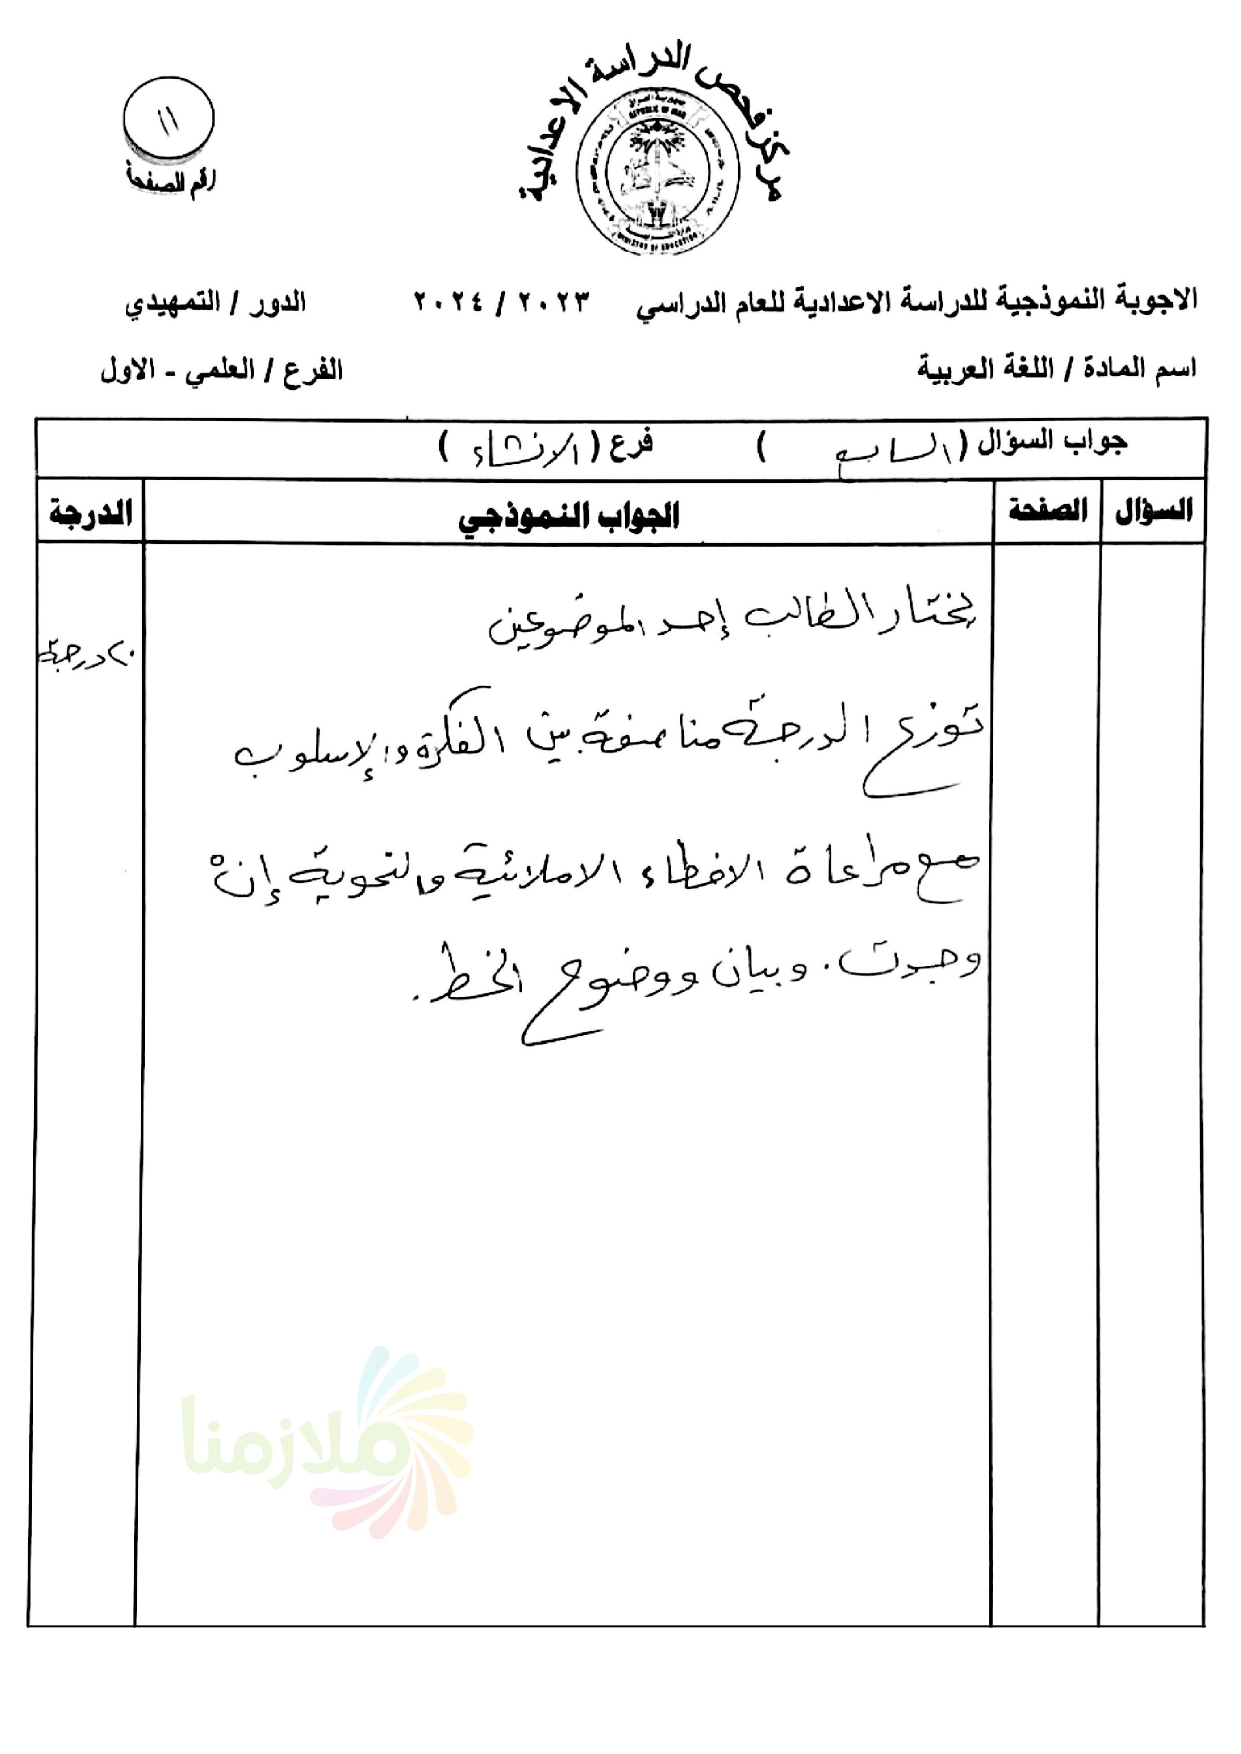 مركز فحص الدراسة الاعدادية
جمهورية العراق
REPUBLIC OF IRAQ
وزارة التربية
MINISTRY OF EDUCATION
١١
رقم الصفحة
الاجوبة النموذجية للدراسة الاعدادية للعام الدراسي ٢٠٢٣ / ٢٠٢٤ الدور / التمهيدي
اسم المادة / اللغة العربية الفرع / العلمي - الاول
جواب السؤال ( السابع ) فرع ( الانشاء )
السؤال الصفحة الجواب النموذجي الدرجة
يختار الطالب إحد الموضوعين
٢٠ درجة
توزع الدرجة مناصفة بين الفكرة والإسلوب
مع مراعاة الاخطاء الاملائية والنحوية إنْ
وجدت. وبيان ووضوح الخط.
ملازمنا